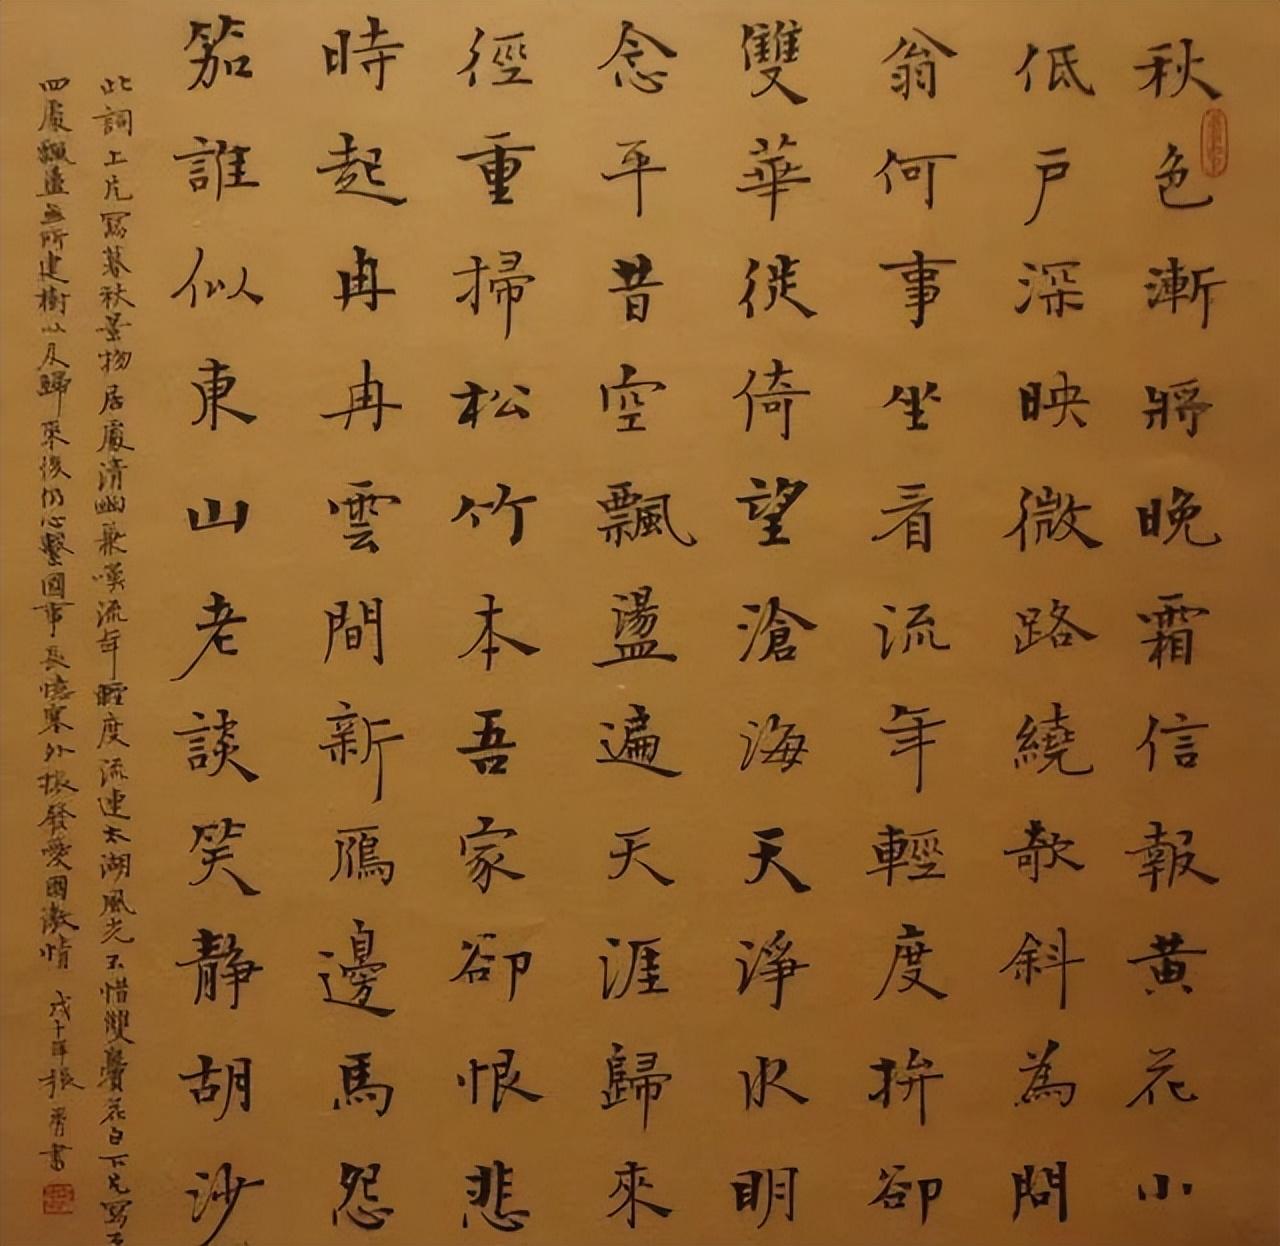 秋色漸將晚霜信報黃花小
低戶深映微路繞欹斜為問
翁何事坐看流年輕度拚卻
雙華徙倚望滄海天淨水明
念平昔空飄盪遍天涯歸來
徑重掃松竹本吾家卻恨悲
時起冉冉雲間新鴈邊馬怨
笳誰似東山老談笑靜胡沙
此詞上片寫暮秋景物居處清幽兼嘆流年輕度流連太湖風光不惜雙鬢花白下片寫
四處飄盪無所建樹以及歸來後仍心繫國事長憶塞外振發愛國激情 振秀書